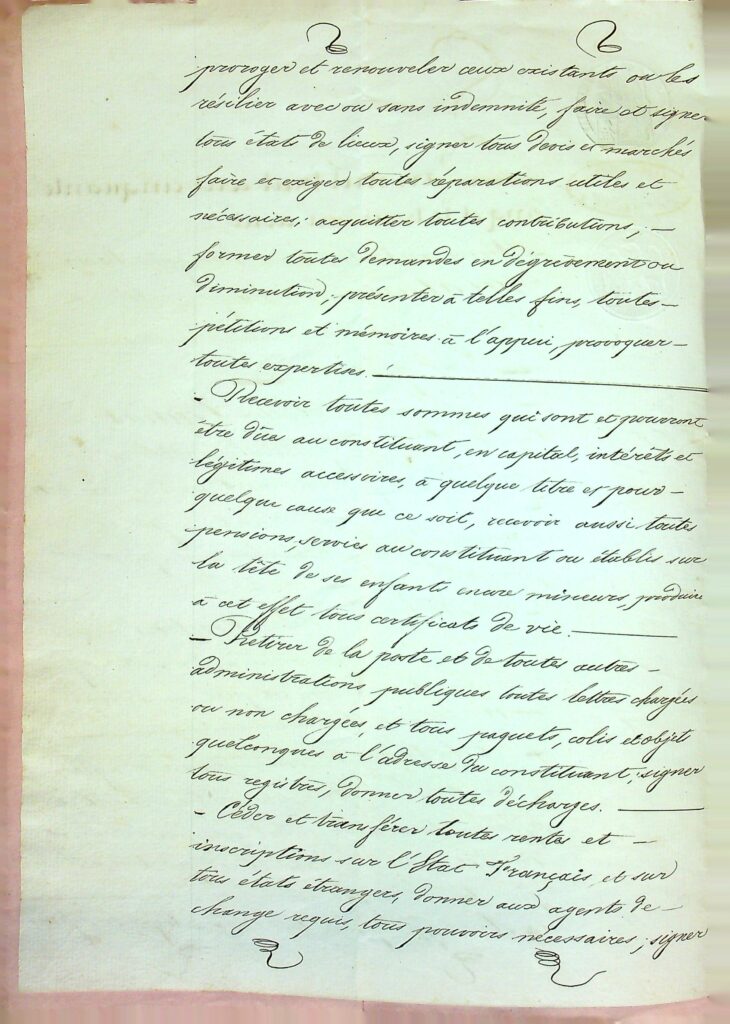 proroger et renouveler ceux existants ou les
résilier avec ou sans indemnité, faire et signer
tous états de lieux, signer tous devis et marchés
faire et exiger toutes réparations utiles et
nécessaires; acquitter toutes contributions, —
former toutes demandes en dégrèvement ou
diminution, présenter à telles fins, toutes —
pétitions et mémoires à l'appui, provoquer —
toutes expertises. —
- Recevoir toutes sommes qui sont et pourront
être dûes au constituant, en capital, intérêts et
légitimes accessoires, à quelque titre et pour —
quelque cause que ce soit, recevoir aussi toutes
pensions, servies au constituant ou établis sur
la tête de ses enfants encore mineurs, produire
à cet effet tous certificats de vie. —
- Retirer de la poste et de toutes autres —
administrations publiques toutes lettres chargées
ou non chargées, et tous paquets, colis et objets
quelconques à l'adresse du constituant; signer
tous registres, donner toutes décharges. —
- Céder et transférer toutes rentes et —
inscriptions sur l'Etat Français, et sur
tous états étrangers, donner aux agents de —
change requis, tous pouvoirs nécessaires; signer